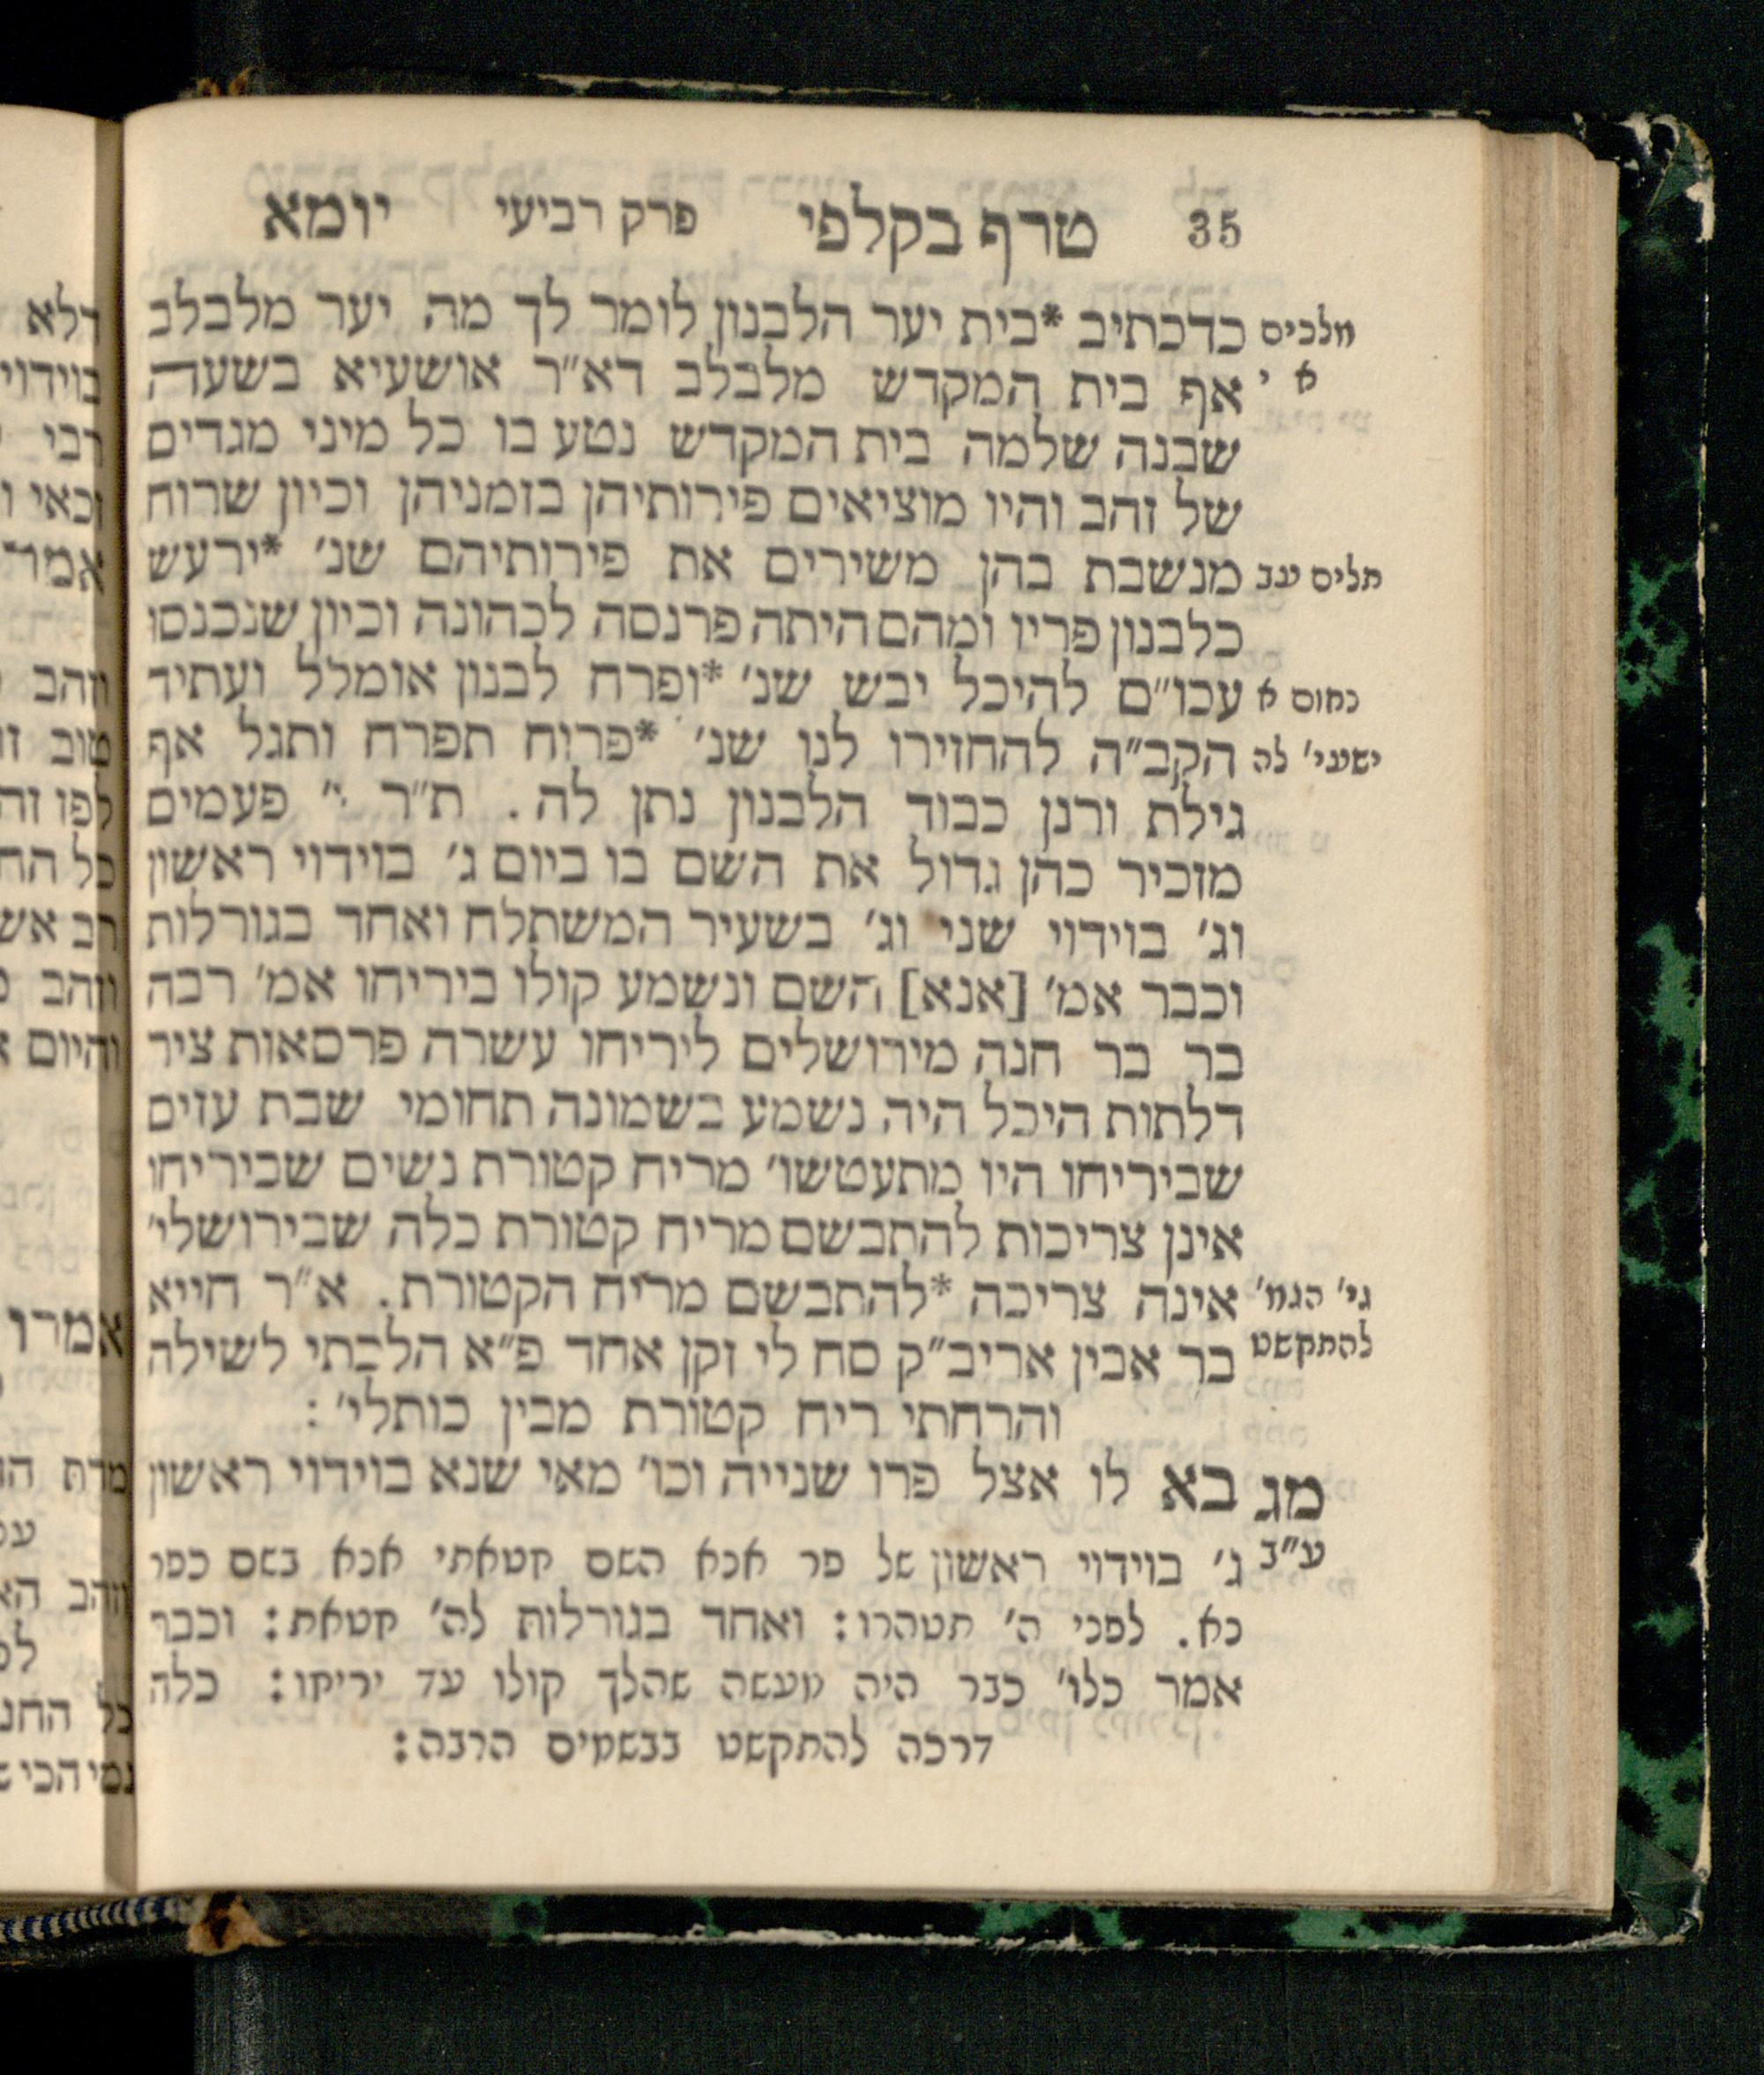 35 טרף בקלפי פרק רביעי יומא
מלכים כדכתיב *בית יער הלבנון לומר לך מה יער מלבלב
א י אף בית המקדש מלבלב דא״ר אושעיא בשעה
שבנה שלמה בית המקדש נטע בו כל מיני מגדים
של זהב והיו מוציאים פירותיהן בזמניהן וכיון שרוח
תלים עב מנשבת בהן משירים את פירותיהם שנ׳ *ירעש
כלבנון פריו ומהם היתה פרנסה לכהונה וכיון שנכנסו
נחום א עכו״ם להיכל יבש שנ׳ *ופרח לבנון אומלל ועתיד
ישעי׳ לה הקב״ה להחזירו לנו שנ׳ *פרוח תפרח ותגל אף
גילת ורנן כבוד הלבנון נתן לה. ת״ר י׳ פעמים
מזכיר כהן גדול את השם בו ביום ג׳ בוידוי ראשון
וג׳ בוידוי שני וג׳ בשעיר המשתלח ואחד בגורלות
וכבר אמ׳ [אנא] השם ונשמע קולו ביריחו אמ׳ רבה
בר בר חנה מירושלים ליריחו עשרה פרסאות ציר
דלתות היכל היה נשמע בשמונה תחומי שבת עזים
שביריחו היו מתעטשו׳ מריח קטורת נשים שביריחו
אינן צריכות להתבשם מריח קטורת כלה שבירושלי׳
גי׳ הגמ׳ אינה צריכה *להתבשם מריח הקטורת. א״ר חייא
להתקשט בר אבין אריב״ק סח לי זקן אחד פ״א הלכתי לשילה
והרחתי ריח קטורת מבין כותלי׳:
מג בא לו אצל פרו שנייה וכו׳ מאי שנא בוידוי ראשון
ע״ב ג׳ בוידוי ראשון של פר אנא השם חטאתי אנא בשם כפר
נא. לפני ה׳ תטהרו: ואחד בגורלות לה׳ חטאת: וכבר
אמר כלו׳ כבר היה מעשה שהלך קולו עד יריחו: כלה
דרכה להתקשט בבשמים הרבה: